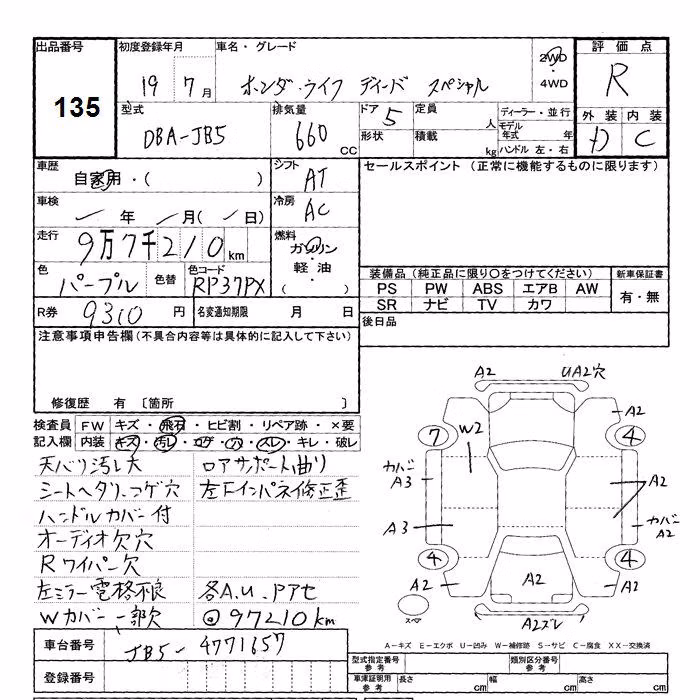 出品番号 初度登録年月 車名・グレード 2WD 評価点
135 19 7月 ホンダ・ライフ ディーバ スペシャル 4WD R
型式 排気量 ドア 5 定員 人 ディーラー・並行 外装 内装
DBA-JB5 660 CC 形状 積載 kg モデル年式 年 C
ハンドル 左・右
車歴 自家用・( ) シフト AT セールスポイント (正常に機能するものに限ります)
車検 年 月( 日) 冷房 AC
走行 9万7千210km 燃料 ガソリン・軽油 ( )
色 パープル 色替 色コード RP37PX 装備品 (純正品に限り○をつけてください) 新車保証書
PS PW ABS エアB AW 有・無
SR ナビ TV カワ
R券 9310円 名変通知期限 月 日 後日品
注意事項申告欄(不具合内容等は具体的に記入して下さい)
修復歴 有 〔箇所 〕
検査員 FW キズ・飛石・ヒビ割・リペア跡・×要
記入欄 内装 キズ・汚レ・コゲ・穴・スレ・キレ・破レ
天バリ汚レ大 ロアサポート曲り
シートヘタリ、コゲ穴 左Fインパネ修正歪
ハンドルカバー付
オーディオ欠穴
Rワイパー欠
左ミラー電格不良 各A.U.Pアセ
Wカバー一部欠 @97210km
車台番号 JB5-4771657
登録番号
A2 UA2穴
A2
7 W2 4
カバー A3 A2
A3 カバー A2
4 4
A2 A2 A2
スペア A2ズレ
A-キズ E-エクボ U-凹み W-補修跡 S-サビ C-腐食 XX-交換済
型式指定番号 参考 類別区分番号 参考
車庫証明用 参考 長さ cm 幅 cm 高さ cm